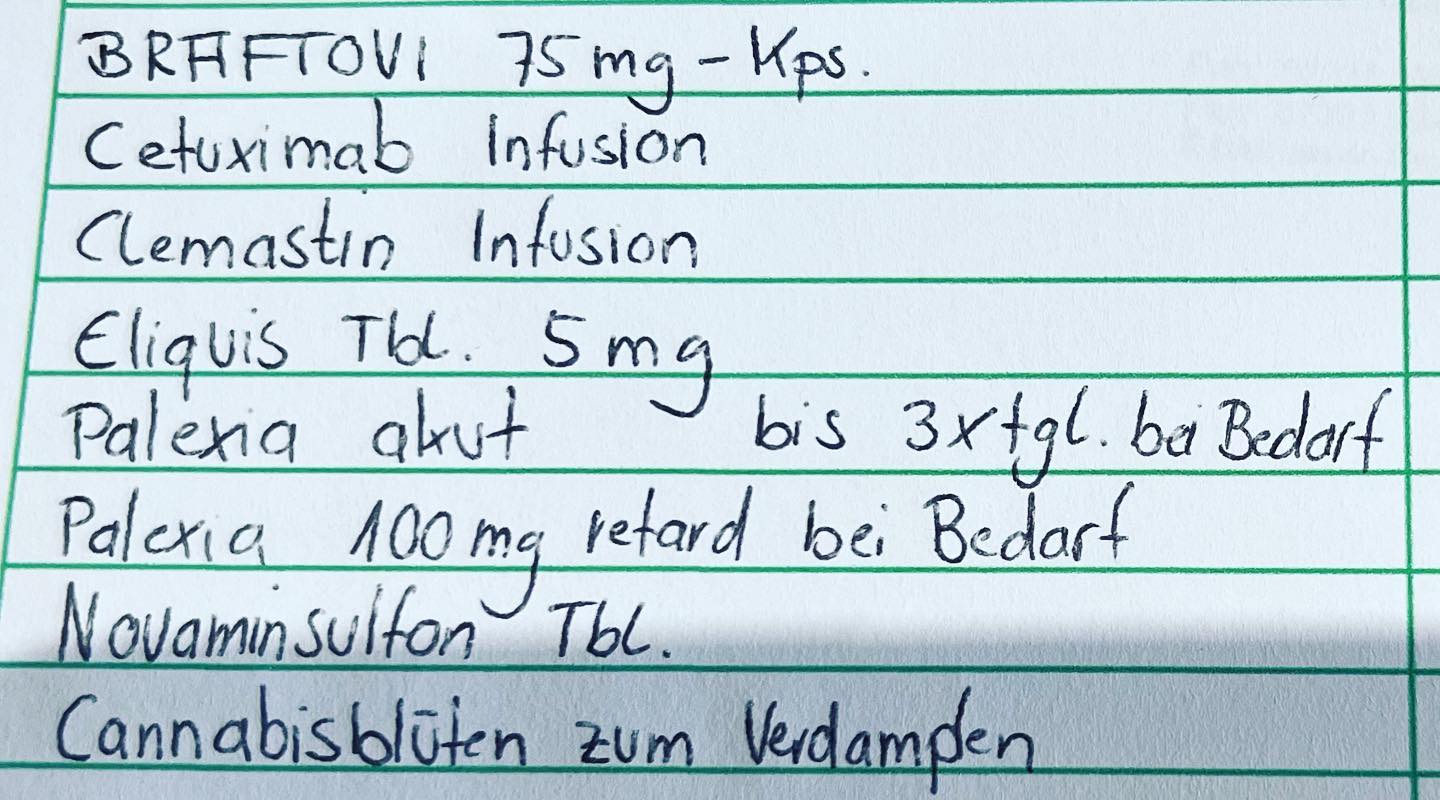 BRAFTOVI 75 mg - Kps.
Cetuximab Infusion
Clemastin Infusion
Eliquis Tbl. 5 mg
Palexia akut bis 3x tgl. bei Bedarf
Palexia 100 mg retard bei Bedarf
Novaminsulfon Tbl.
Cannabisblüten zum Verdampfen